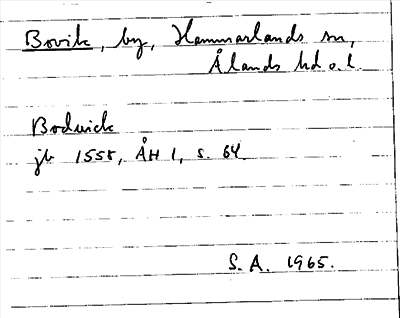 Bovik, by, Hammarlands sn,
Ålands hd o. l.
Bodwick
jb 1558, ÅH 1, s. 64.
S. A. 1965.